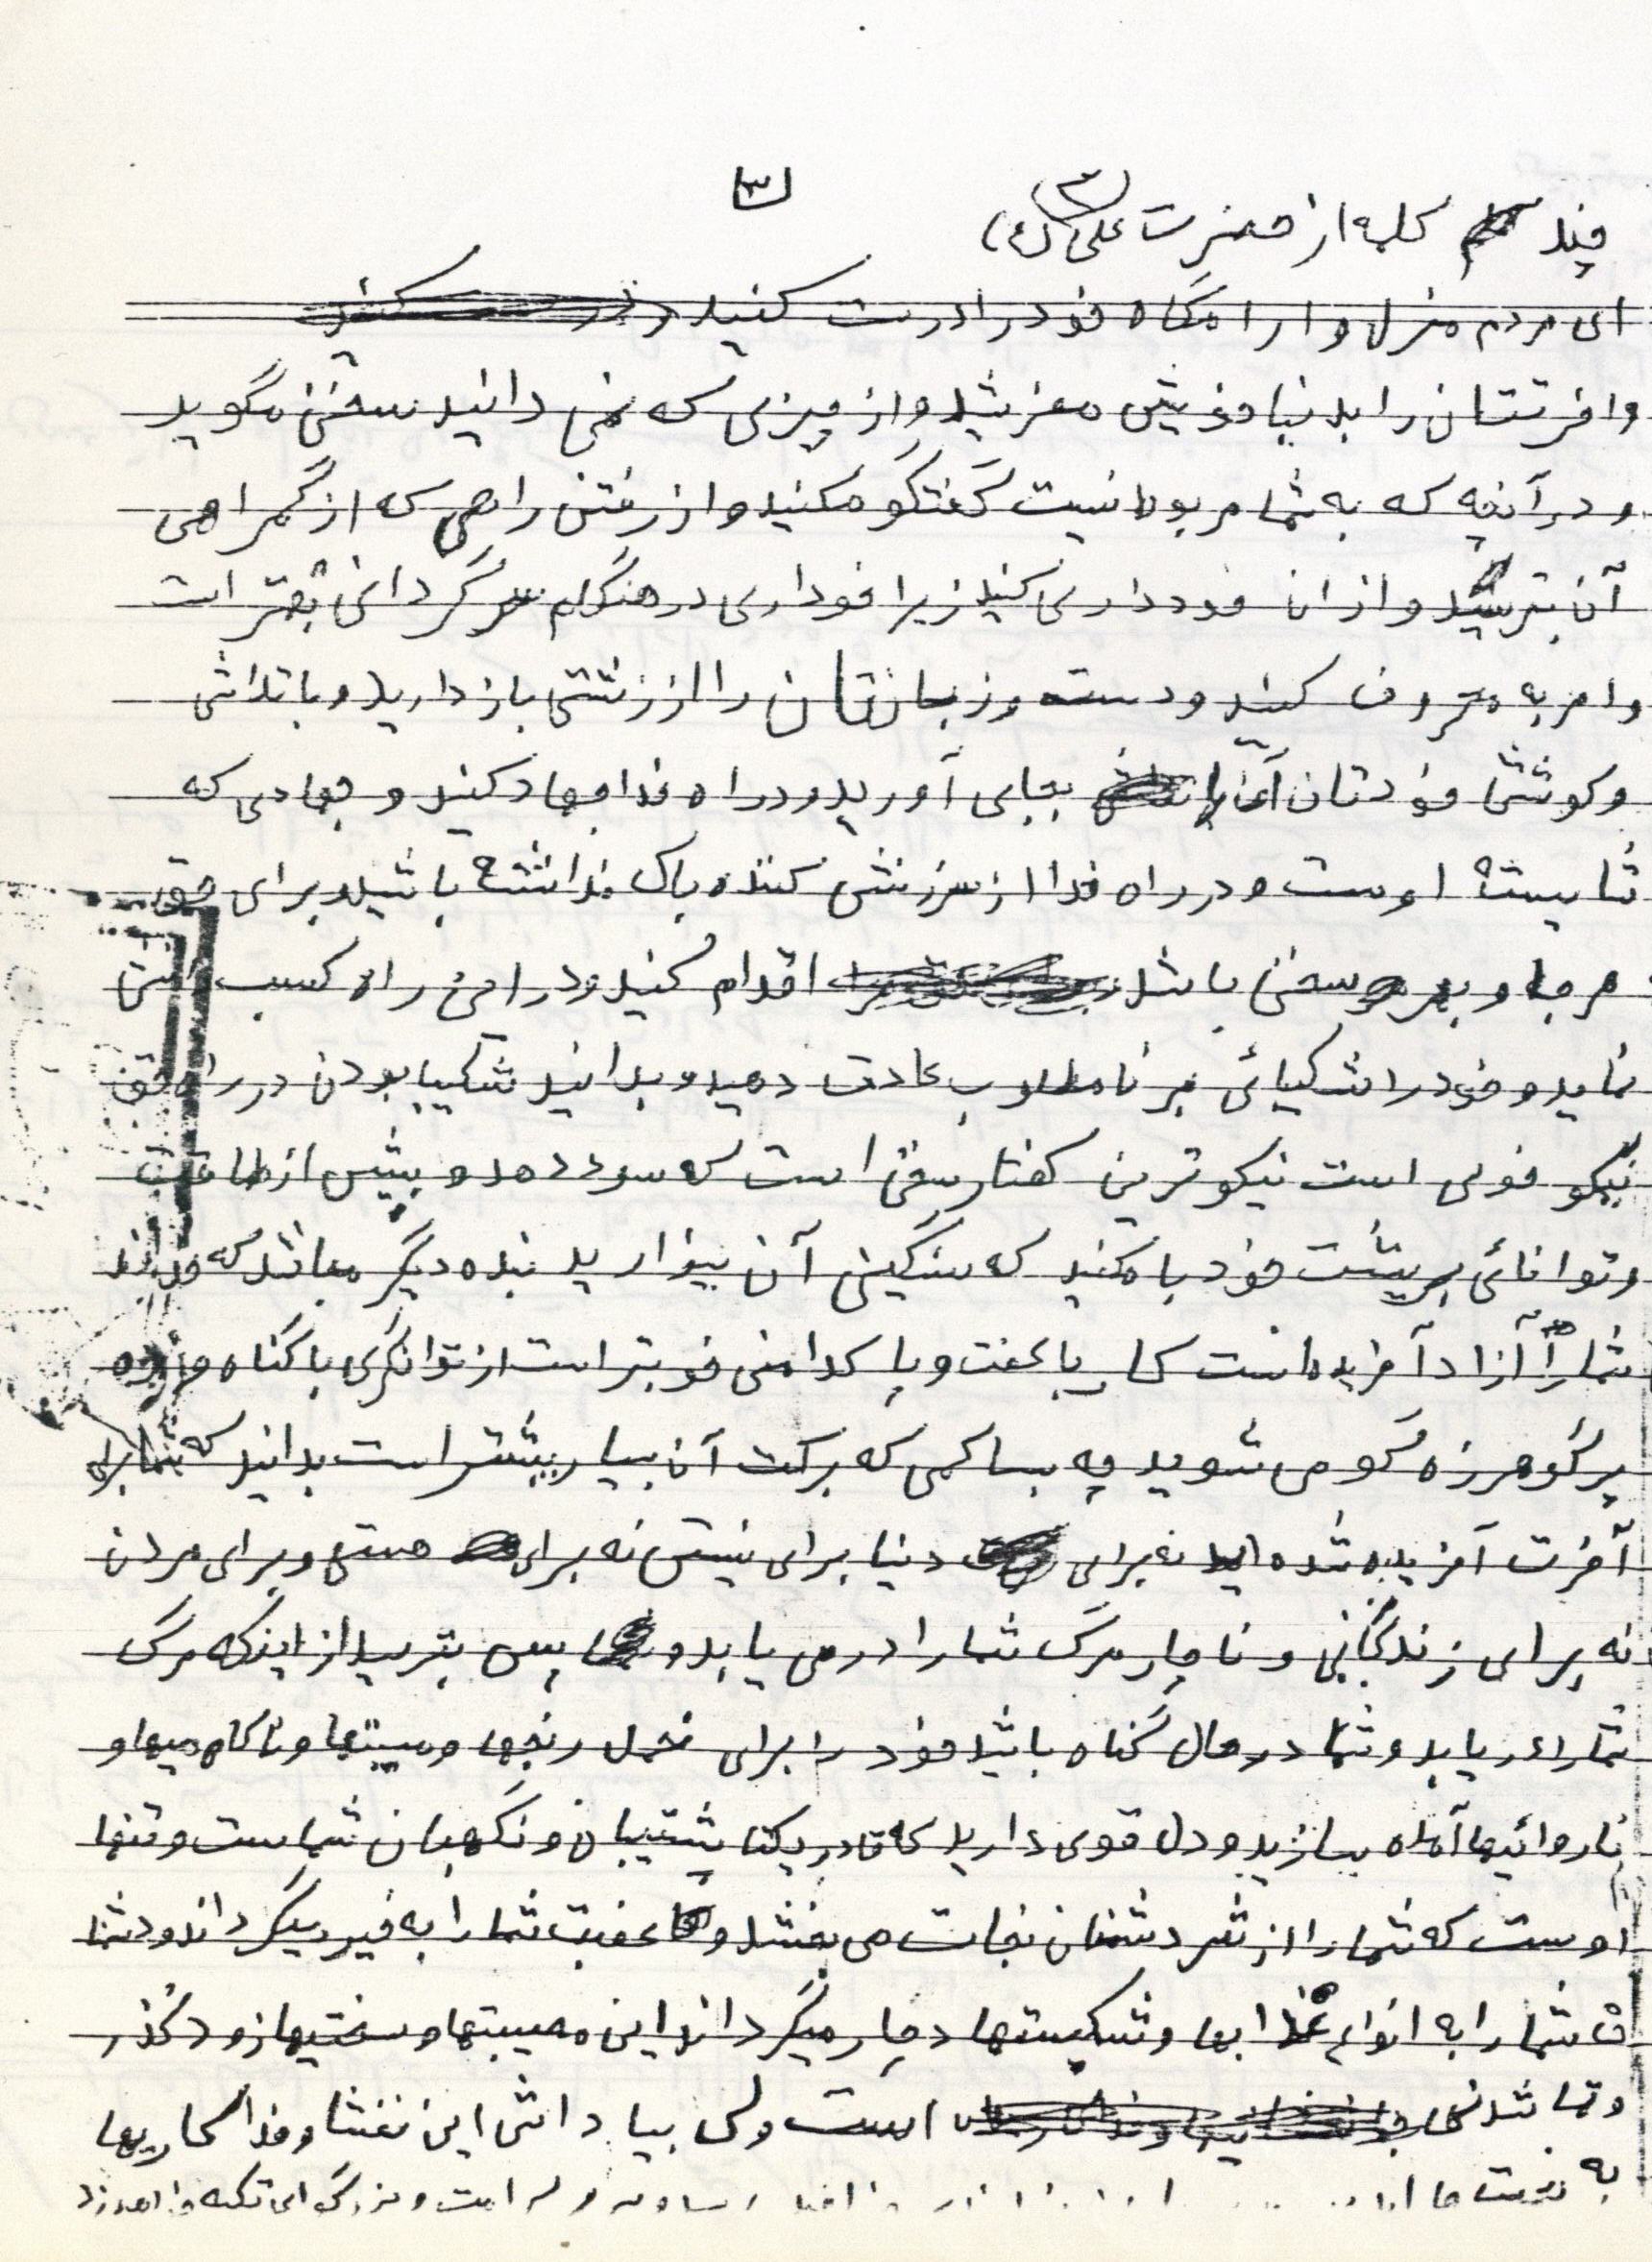 ۳
چند کلمه از حضرت علی (ع) (۳)
ای مردم منزل و ارامگاه خود را درست کنید
و اخرتتان را بدنیا خویش مفروشید و از چیزی که نمی دانید سخن مگوید
و در آنچه که به شما مربوط نیست گفتگو مکنید و از رفتن راهی که از گمراهی
آن بترسید و از ان خودداری کنید زیرا خوداری در هنگام سرگردانی بهتر است
و امر به معروف کنید و دست و زبانتان را از زشتی باز دارید و با تلاش
و کوشش خودتان آنرا بجای آورید و در راه خدا جهاد کنید و جهادی که
شایسته اوست و در راه خدا از سرزنش کننده باک نداشته باشید و برای حق
هر جا و بهر سخن باشد اقدام کنید و در امن راه کسب
نماید و خود را شکیبائی بر نامطلوب عادت دهید و بدانید شکیبا بودن در راه حق
نیکو خوی است نیکو ترین گفتار سخن است که سود دهد و بیش از طاقت
و توانائی بر پشت خود بار مکنید که سنگینی آن بیزارید بنده دیگر مباشد که خداوند
شما را آزاد آفریده است کار با عفت و پاکدامنی خوبتر است از توانگری با گناه
پر گو هرزه گو می شوید چه بسا کمی که برکت آن بسیار بیشتر است بدانید که شما برای
آخرت آفریده شده اید نه برای دنیا برای نیستی نه برای هستی و برای مردن
نه برای زندگانی و ناچار مرگ شما را در می یابد و پس بترسید از اینکه مرگ
شما را دریابد و شما در حال گناه باشید خود را برای تحمل رنجها و مصیبتها و ناکامیها و
نارواییها آماده بسازید و دل قوی دارید که قادر یکتا پشتیبان و نگهبان شماست و تنها
اوست که شما را از شر دشمنان نجات می بخشد و عاقبت شما را به خیر میگرداند و دشمنا
ن شما را به انواع عذابها و شکستها دچار میگرداند این مصیبتها و سختیها زود گذر
و تما شدنی است ولی بپاداش این و فداکاریها
به نعمت ها